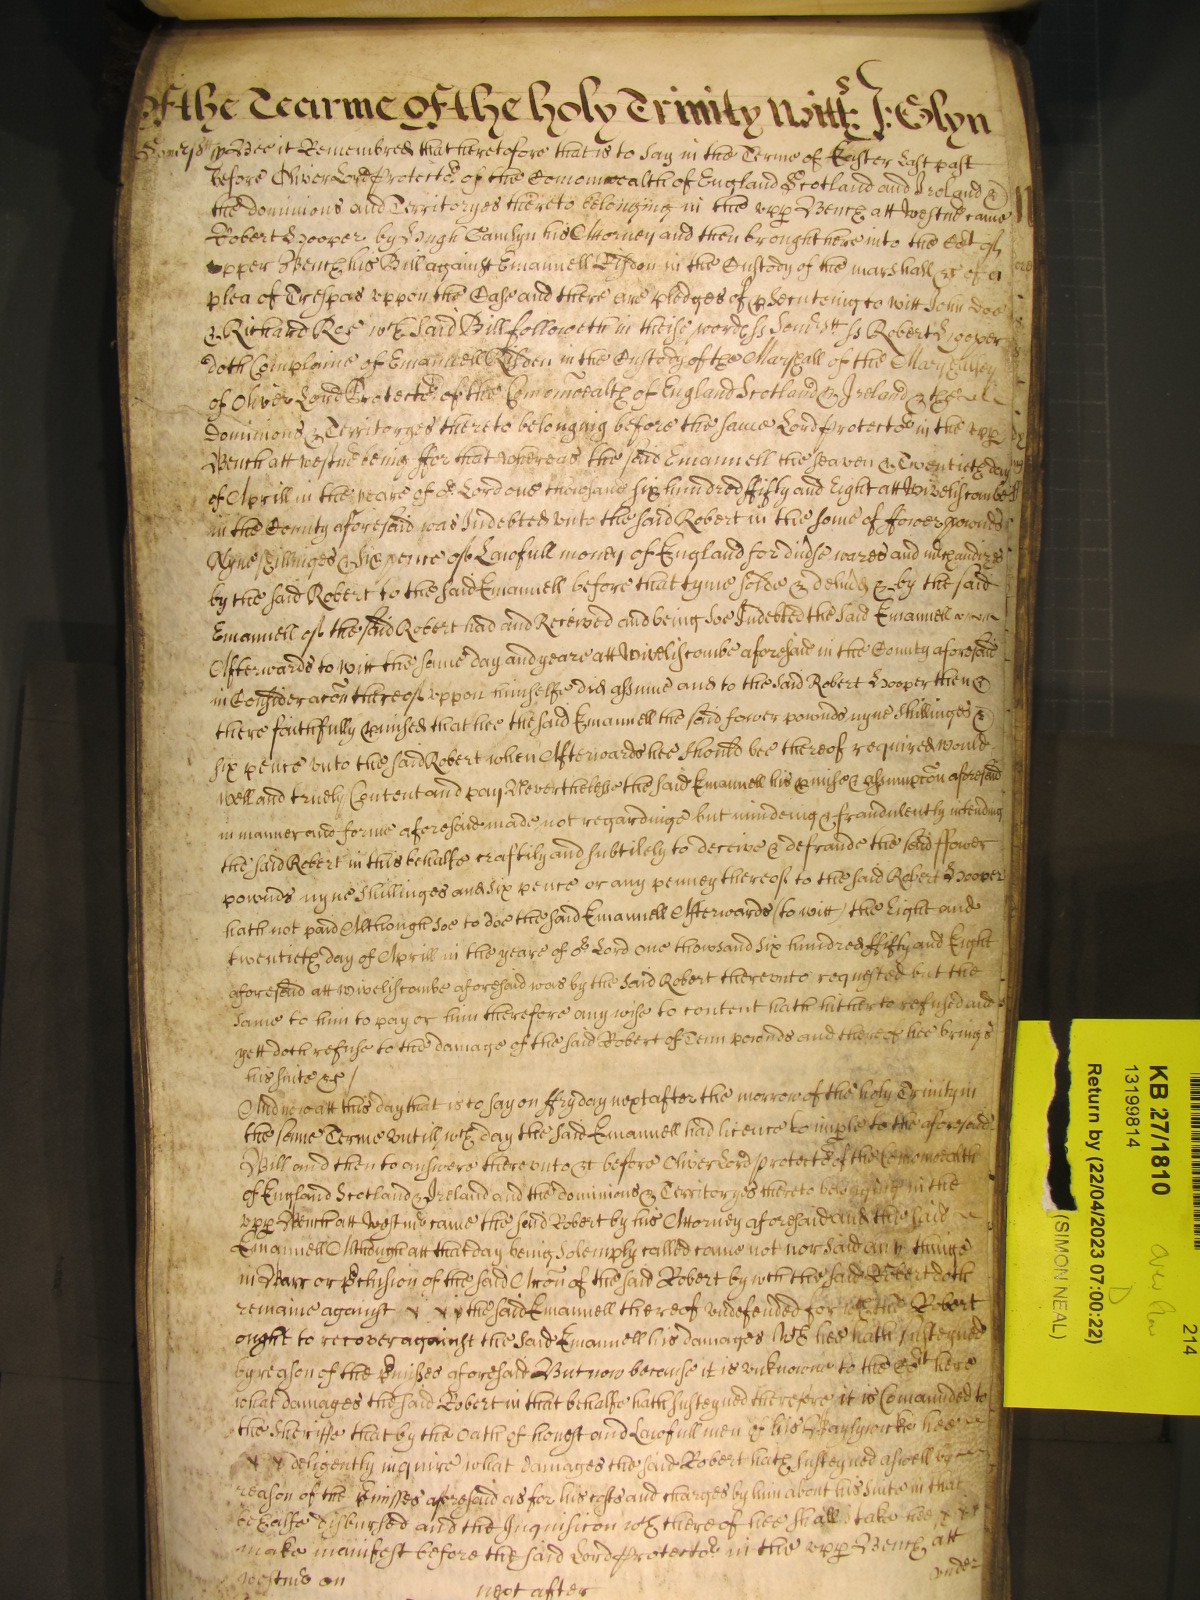 Of the Tearme Of the holy Trinity Witts J: Glyn
Somers ss Bee it Remembred that heretofore that is to say in the Terme of Easter Last past
before Oliver Lord Protector of the Comonwealth of England Scotland and Ireland &
the dominions and Territoryes thereto belonging in the upp Bench att Westmr came
Robert Hooper by Hugh Camlyn his Attorney and then brought here into the Cort of
upper Bench his Bill against Emanuell Risdon in the Custody of the marshall &c of a
plea of Trespas uppon the Case and there are pledges of psecuteing to witt John Doe
& Richard Roe wch said Bill followeth in theise words ss Somsett ss Robert Hooper
doth Complaine of Emanuell Risden in the Custody of the Marshall of the Marshalsey
of Oliver Lord Protector of the Comonwealth of England Scotland & Ireland & the
Dominions & Territoryes thereto belonging before the same Lord Protector in the upp
Bench att Westmr being ffor that whereas the said Emanuell the seaven & Twentieth day
of Aprill in the yeare of or Lord one thousand six hundred fifty and Eight att Wiveliscombe
in the County aforesaid was Indebted unto the said Robert in the some of fower pownds
Nyne shillinges & six pence of Lawfull money of England for divse wares and mchandizes
by the said Robert to the said Emanuell before that tyme solde & delivd & by the said
Emanuell of the said Robert had and Received and being soe Indebted the said Emanuell
Afterwards to witt the same day and yeare att Wiveliscombe aforesaid in the County aforesaid
in Consideracon thereof uppon himselfe did assume and to the said Robert Hooper then &
there faithfully pmised that hee the said Emanuell the said fower pownds nyne shillinges &
six pence unto the said Robert when Afterwards hee should bee thereof required would
well and truely Content and pay Neverthelesse the said Emanuell his pmise & assumpcon aforesaid
in manner and forme aforesaid made not regardinge but mindeing & fraudulently intending
the said Robert in this behalfe craftily and subtilely to deceive & defraude the said ffower
pownds nyne shillinges and six pence or any penney thereof to the said Robert Hooper
hath not paid Although soe to doe the said Emanuell Afterwards (to witt) the Eight and
twentieth day of Aprill in the yeare of or Lord one thousand six hundred fifty and Eight
aforesaid att Wiveliscombe aforesaid was by the said Robert thereunto requested but the
same to him to pay or him therefore any wise to content hath hitherto refused and
yett doth refuse to the damage of the said Robert of Tenn pownds and thereof hee brings
his suite &c /
And now att this day that is to say on ffryday next after the morrow of the holy Trinity in
the same Terme untill wch day the said Emanuell had licence to imple to the aforesaid
Bill and then to answere thereunto &c before Oliver Lord protector of the Comonwealth
of England Scotland & Ireland and the dominions & Territoryes thereto belonging in the
upp Bench att Westmr came the said Robert by his Attorney aforesaid and the said
Emanuell Although att that day being solemply called came not nor said any thinge
in Barr or pclusion of the said Accon of the said Robert by wch the said Robert doth
remaine against the said Emanuell thereof undefended for wch the Robert
ought to recover against the said Emanuell his damages wch hee hath susteyned
by reason of the pmises aforesaid But now because it is unknowne to the Cort here
what damages the said Robert in that behalfe hath susteyned therefore it is Comanded to
the Sheriffe that by the Oath of honest and Lawfull men of his Baylywicke hee
diligently inquire what damages the said Robert hath susteyned aswell by
reason of the pmisses aforesaid as for his costs and charges by him about his suite in that
behalfe disbursed and the Inquisicon wch thereof hee shall take hee
make manifest before the said Lord Protector in the upp Bench att
Westmr on next after under
KB 27/1810
13199814
Return by (22/04/2023 07:00:22)
(SIMON NEAL)
D
214